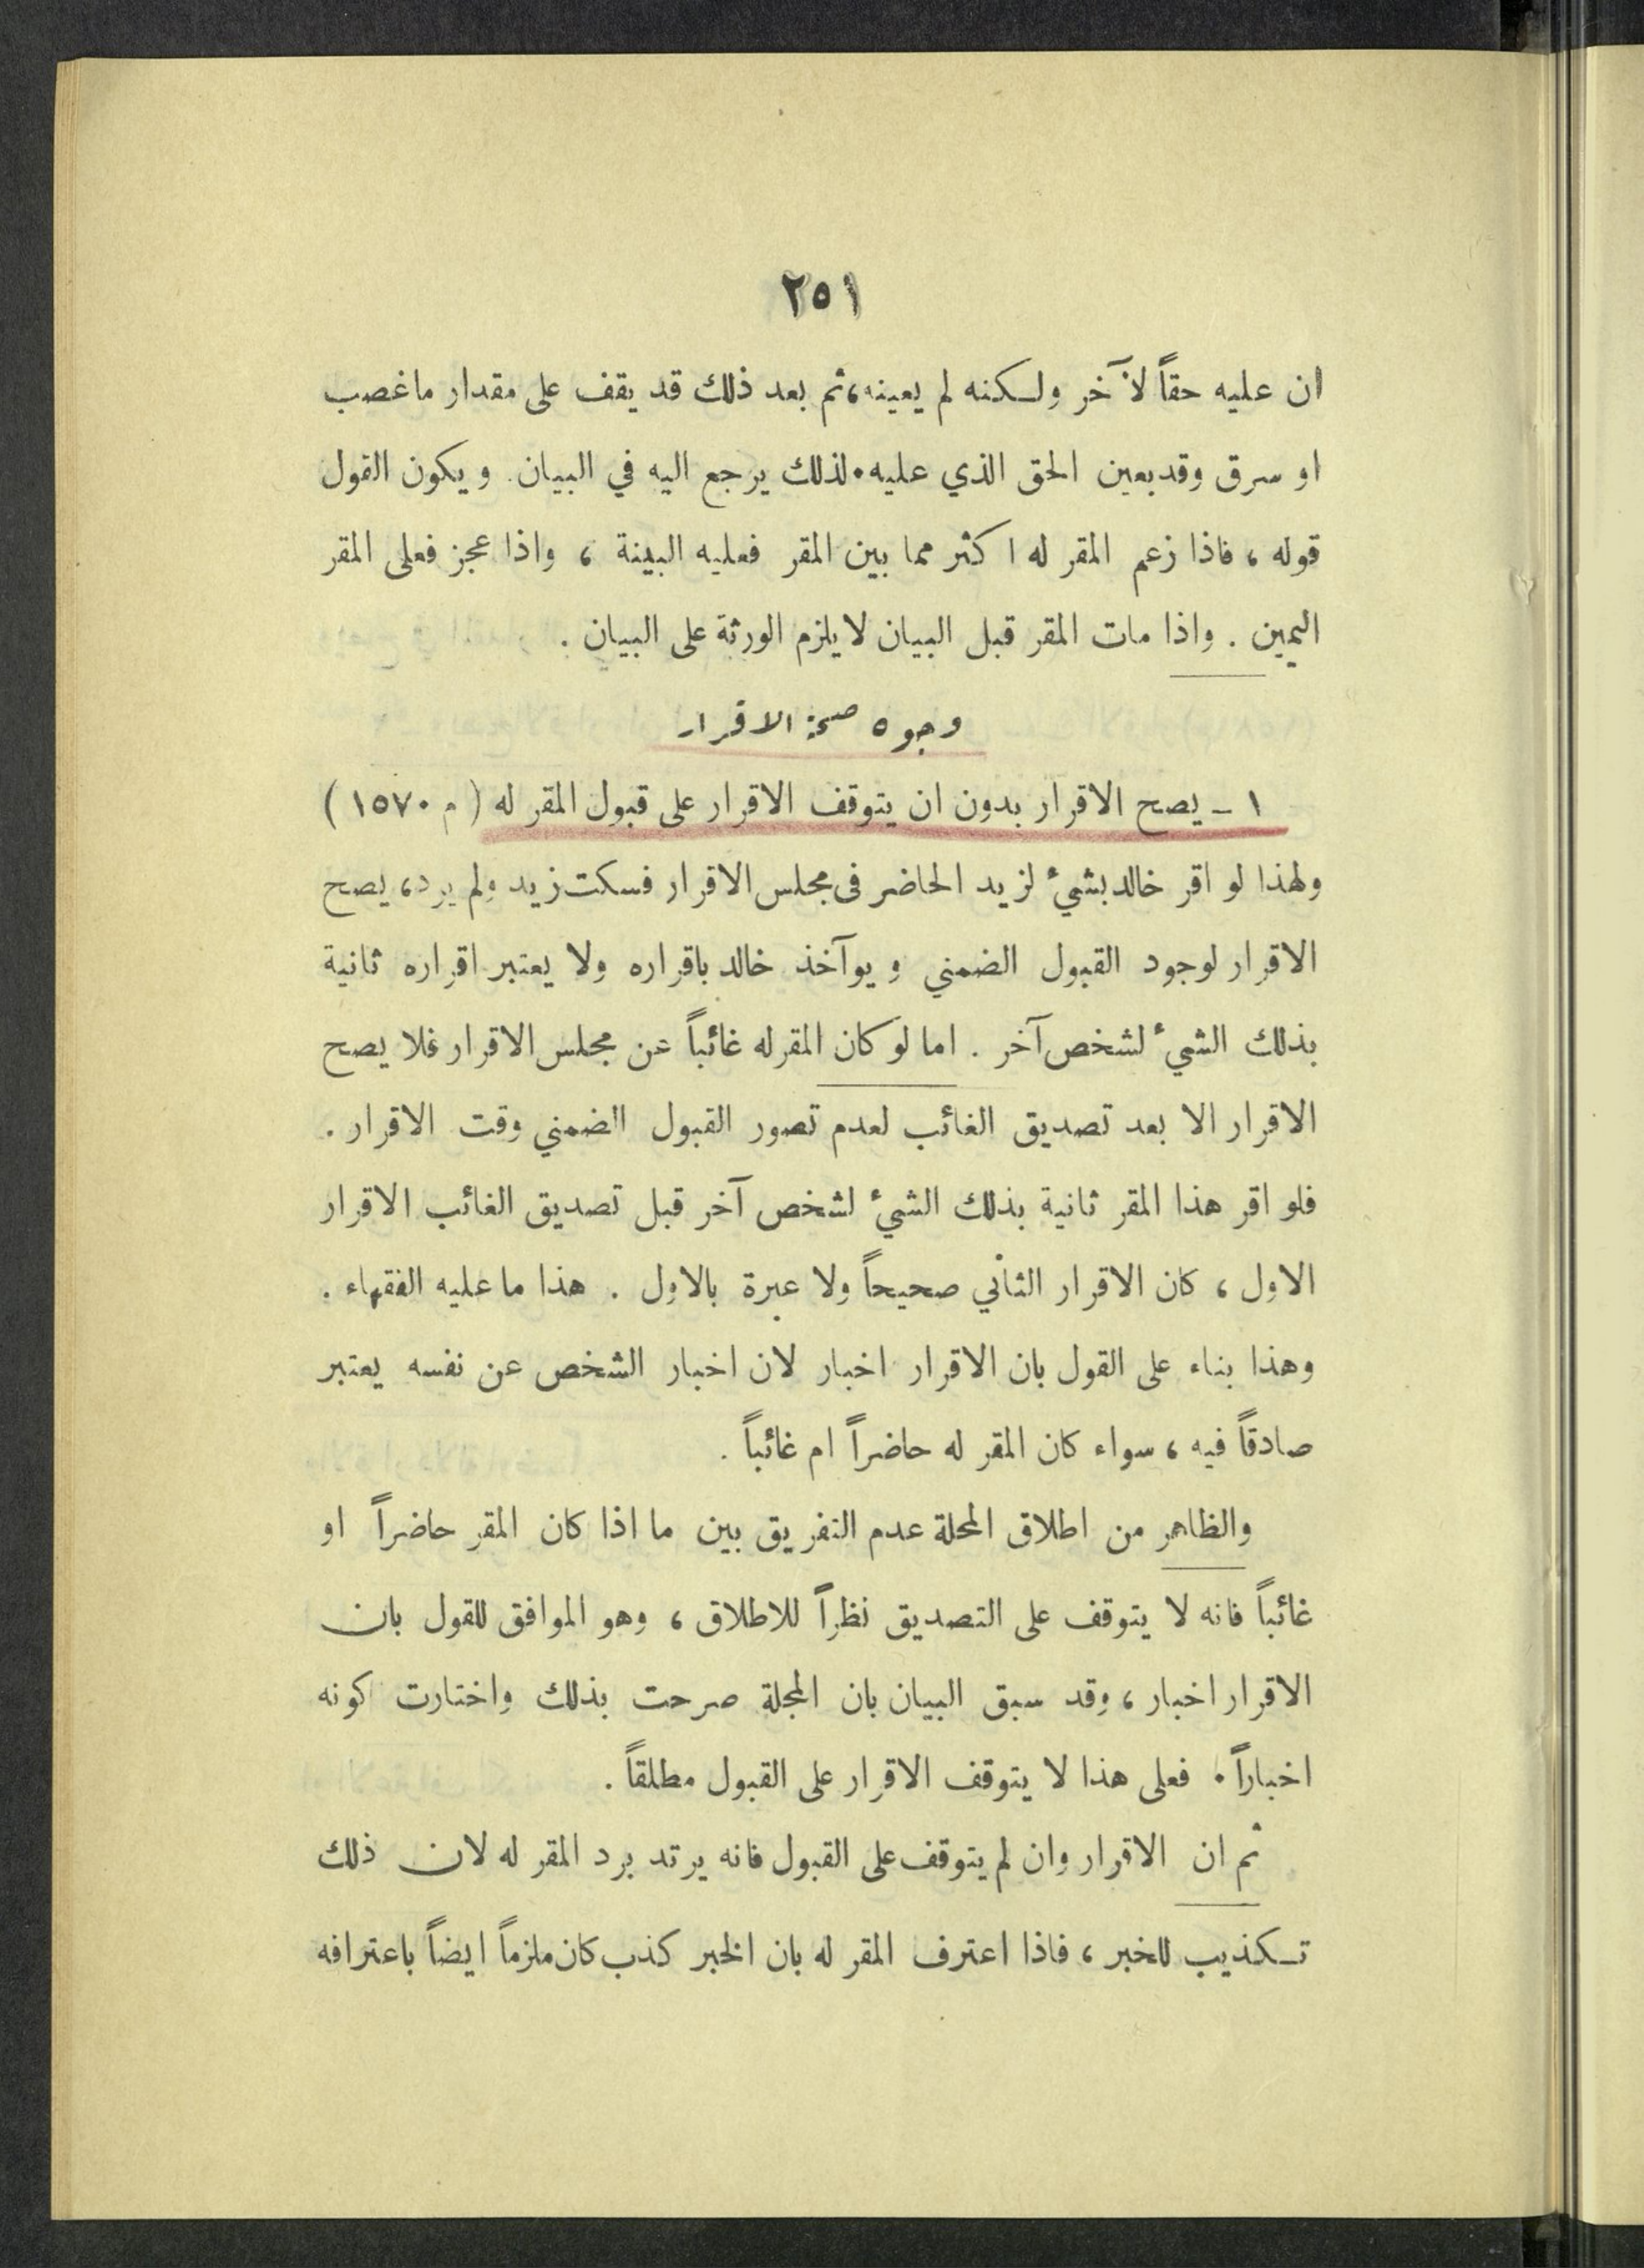 ٢٥١
ان عليه حقاً لآخر ولكنه لم يعينه، ثم بعد ذلك قد يقف على مقدار ما غصب
او سرق وقد يعين الحق الذي عليه. لذلك يرجع اليه في البيان. ويكون القول
قوله ، فاذا زعم المقر له اكثر مما بين المقر فعليه البينة ، واذا عجز فعلى المقر
اليمين . واذا مات المقر قبل البيان لا يلزم الورثة على البيان .
وجوه صحة الاقرار
١ - يصح الاقرار بدون ان يتوقف الاقرار على قبول المقر له ( م ١٥٧٠ )
ولهذا لو اقر خالد بشيءٔ لزيد الحاضر فى مجلس الاقرار فسكت زيد ولم يرد، يصح
الاقرار لوجود القبول الضمني ويوآخذ خالد باقراره ولا يعتبر اقراره ثانية
بذلك الشيءٔ لشخص آخر . اما لو كان المقر له غائباً عن مجلس الاقرار فلا يصح
الاقرار الا بعد تصديق الغائب لعدم تصور القبول الضمني وقت الاقرار .
فلو اقر هذا المقر ثانية بذلك الشيءٔ لشخص آخر قبل تصديق الغائب الاقرار
الاول ، كان الاقرار الثاني صحيحاً ولا عبرة بالاول . هذا ما عليه الفقهاء .
وهذا بناء على القول بان الاقرار اخبار لان اخبار الشخص عن نفسه يعتبر
صادقاً فيه ، سواء كان المقر له حاضراً ام غائباً .
والظاهر من اطلاق المجلة عدم التفريق بين ما اذا كان المقر حاضراً او
غائباً فانه لا يتوقف على التصديق نظراً للاطلاق ، وهو الموافق للقول بان
الاقرار اخبار ، وقد سبق البيان بان المجلة صرحت بذلك واختارت كونه
اخباراً . فعلى هذا لا يتوقف الاقرار على القبول مطلقاً .
ثم ان الاقرار وان لم يتوقف على القبول فانه يرتد برد المقر له لان ذلك
تكذيب للخبر ، فاذا اعترف المقر له بان الخبر كذب كان ملزماً ايضاً باعترافه